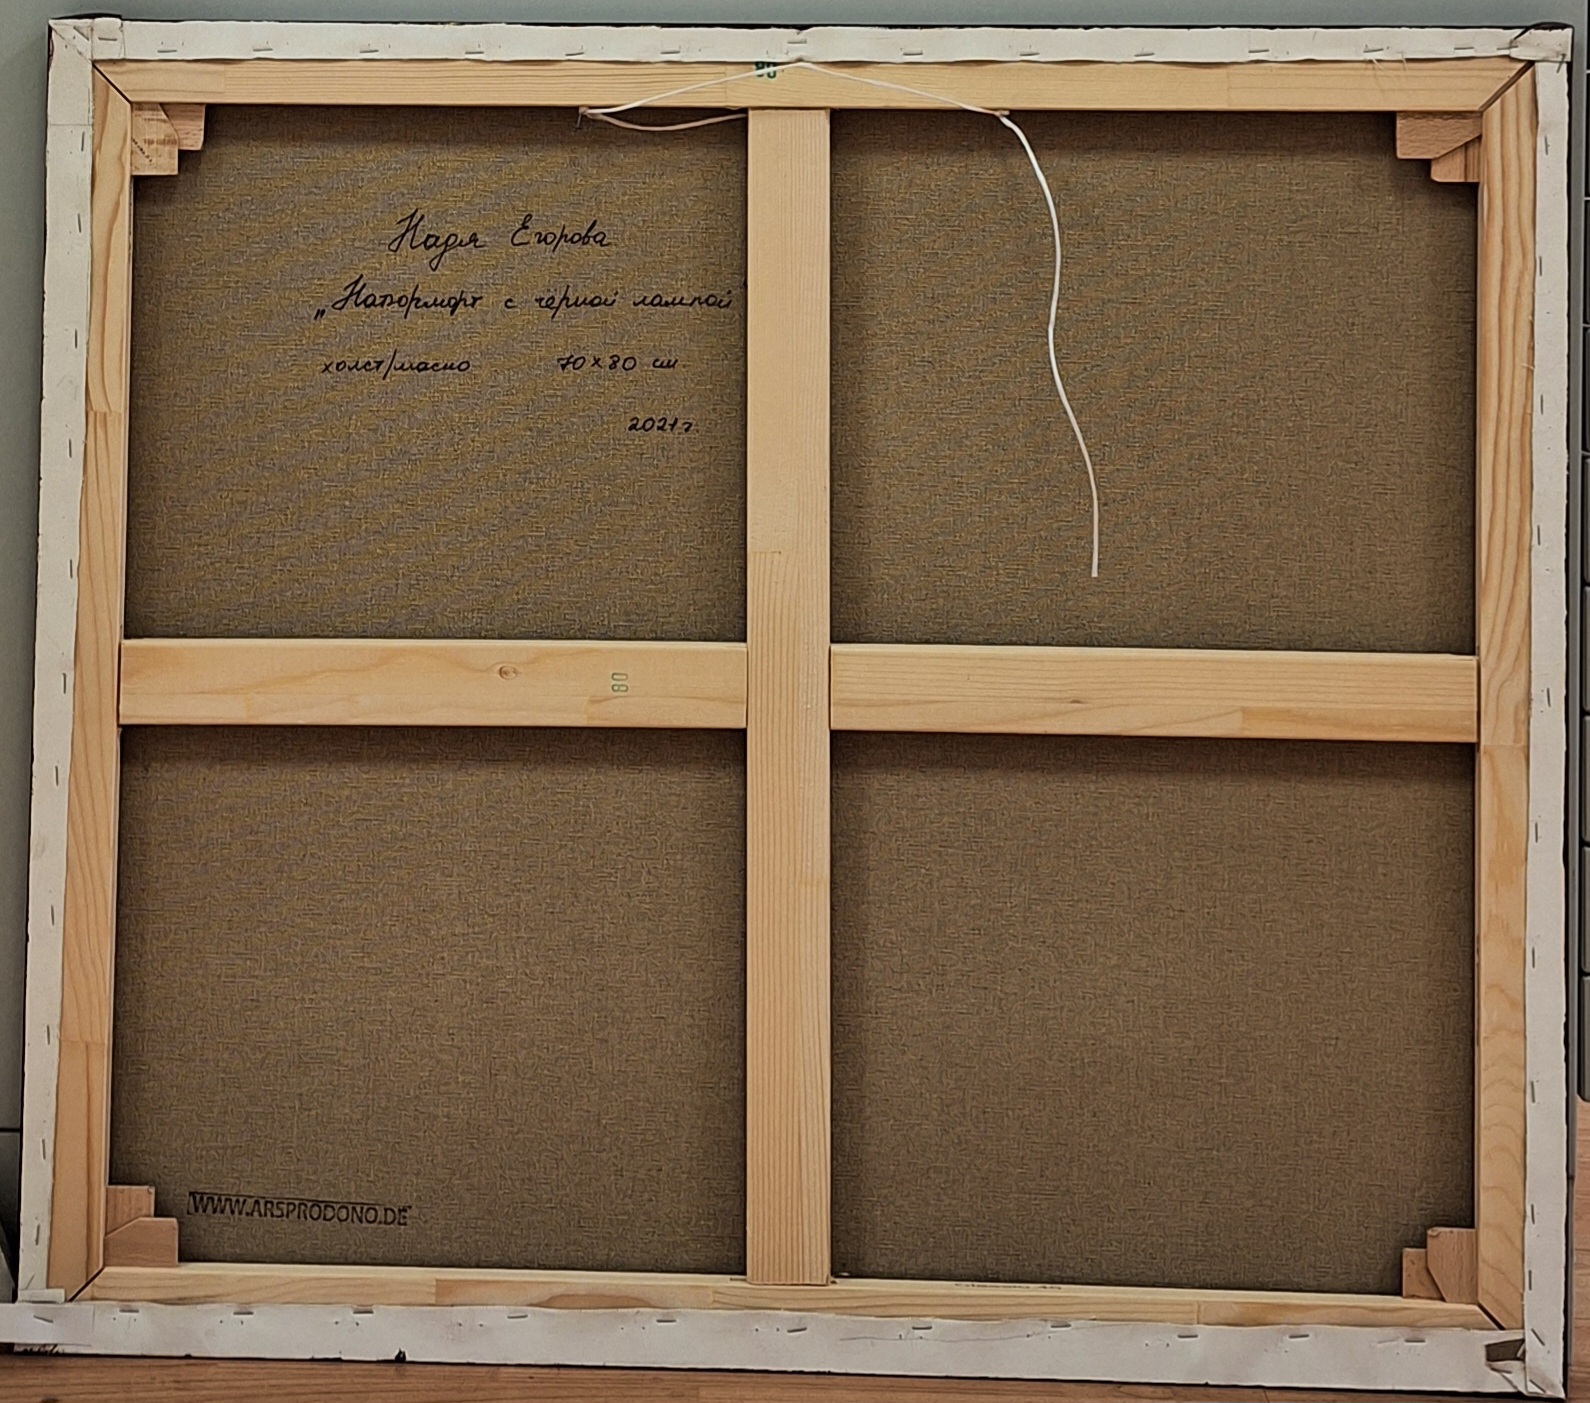 80
Надя Егорова
„Натюрморт с чёрной лампой"
холст/масло 70x80 см.
2021 г.
80
WWW.ARSPRODONO.DE